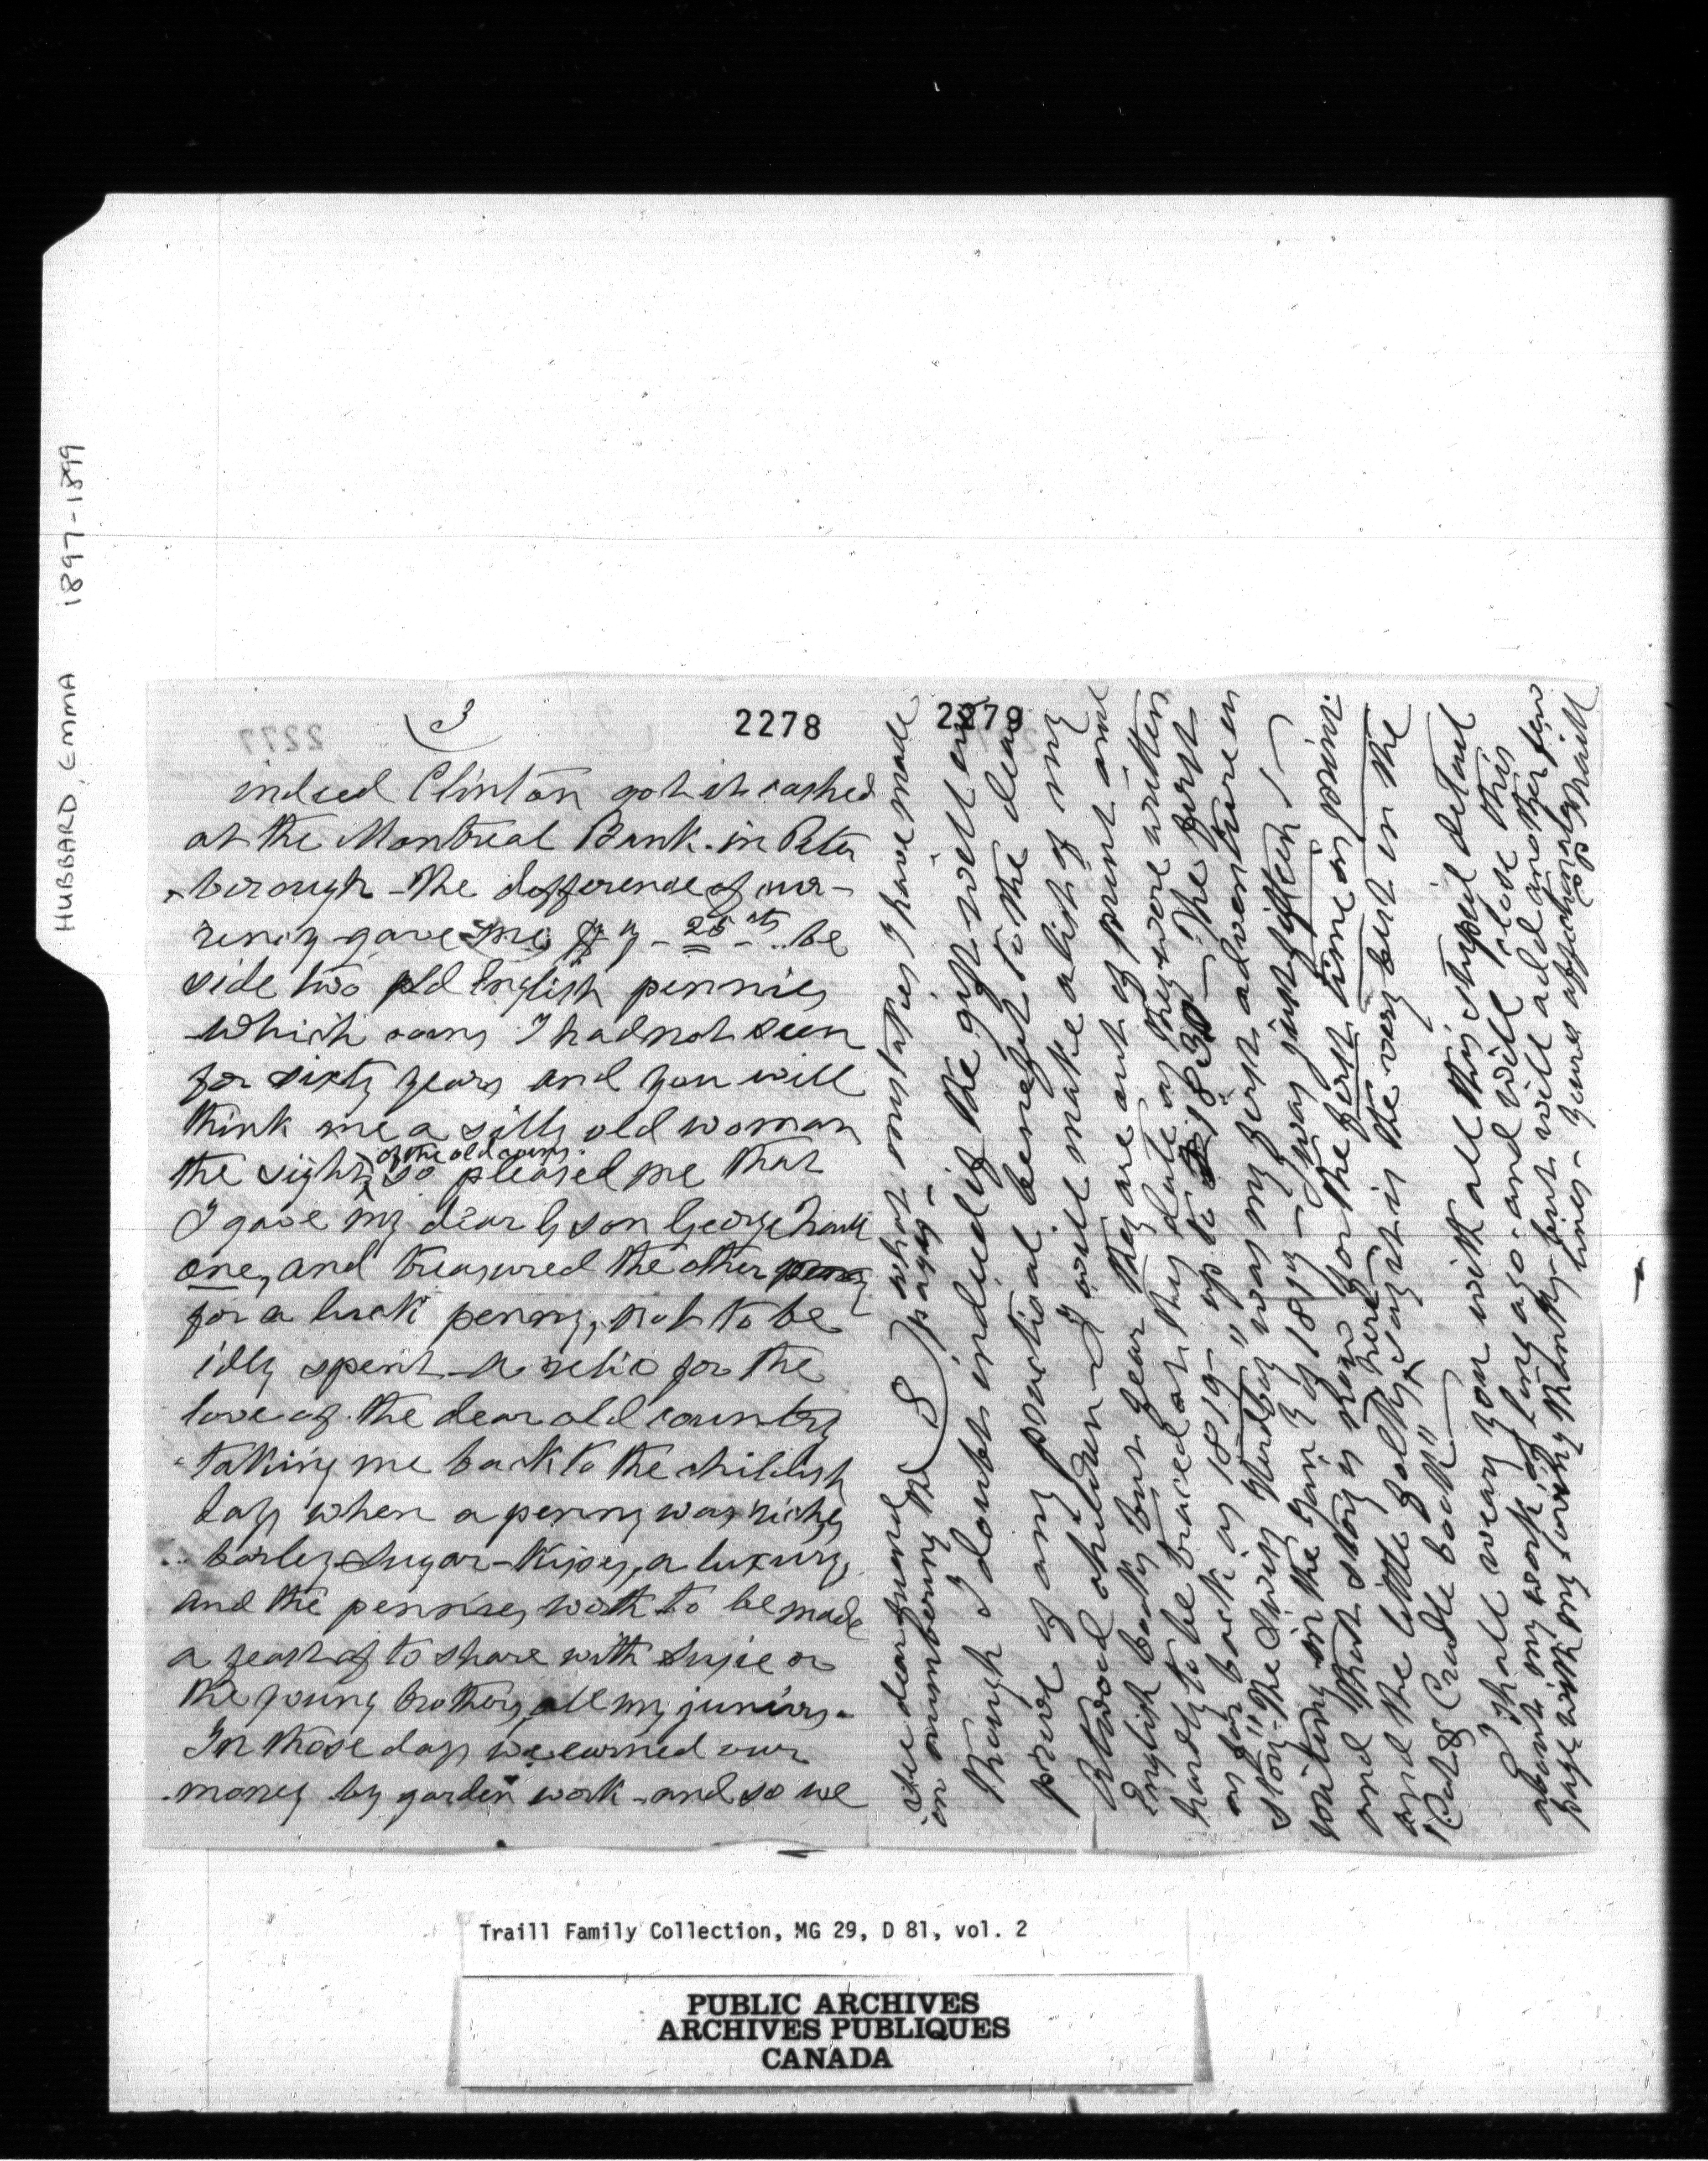 HUBBARD, EMMA 1897-1899
2277
3
2278
indeed Clinton got it cashed
at the Montreal Bank in Peter
borough - the difference of cur-
rency gave me 25 cts be
side two old English pennies
which coins I had not seen
for sixty years and you will
think me a silly old woman
of the old coins
the sight so pleased me that
I gave my dear G son George
one, and treasured the other penny
for a luck penny, not to be
idly spent - a relic for the
love of the dear old country
taking me back to the childish
days when a penny was riches
barley-sugar-kisses, a luxury,
and the pennies worth to be made
a feast of to share with Susie or
the young brothers, all my juniors.
In those days we earned our
money by garden work - and so we
2279
See dear friend what mistakes I have made
in numbering the 8 pages -
though I doubt indeed if the gift will
prove of any practical benefit to the dear
Atwood children - I will make a list of my
English books but I fear they are out of print and
hardly to be traced at this date as they were written
as far back as 1819 - up to 1830 - The first
story "The Swiss was my first adventure in
writing in the year of 1819 - I was just fifteen! -
and that story is now for the first time in print
here
and the little folks say it is the very best in the
"Cot & Cradle book"
I shall weary you with all this stupid detail
about my work of long ago - and will close this
page with my loving thanks - but will add another few
lines - Yours affectionately
C P Traill
Traill Family Collection, MG 29, D 81, vol. 2
PUBLIC ARCHIVES
ARCHIVES PUBLIQUES
CANADA